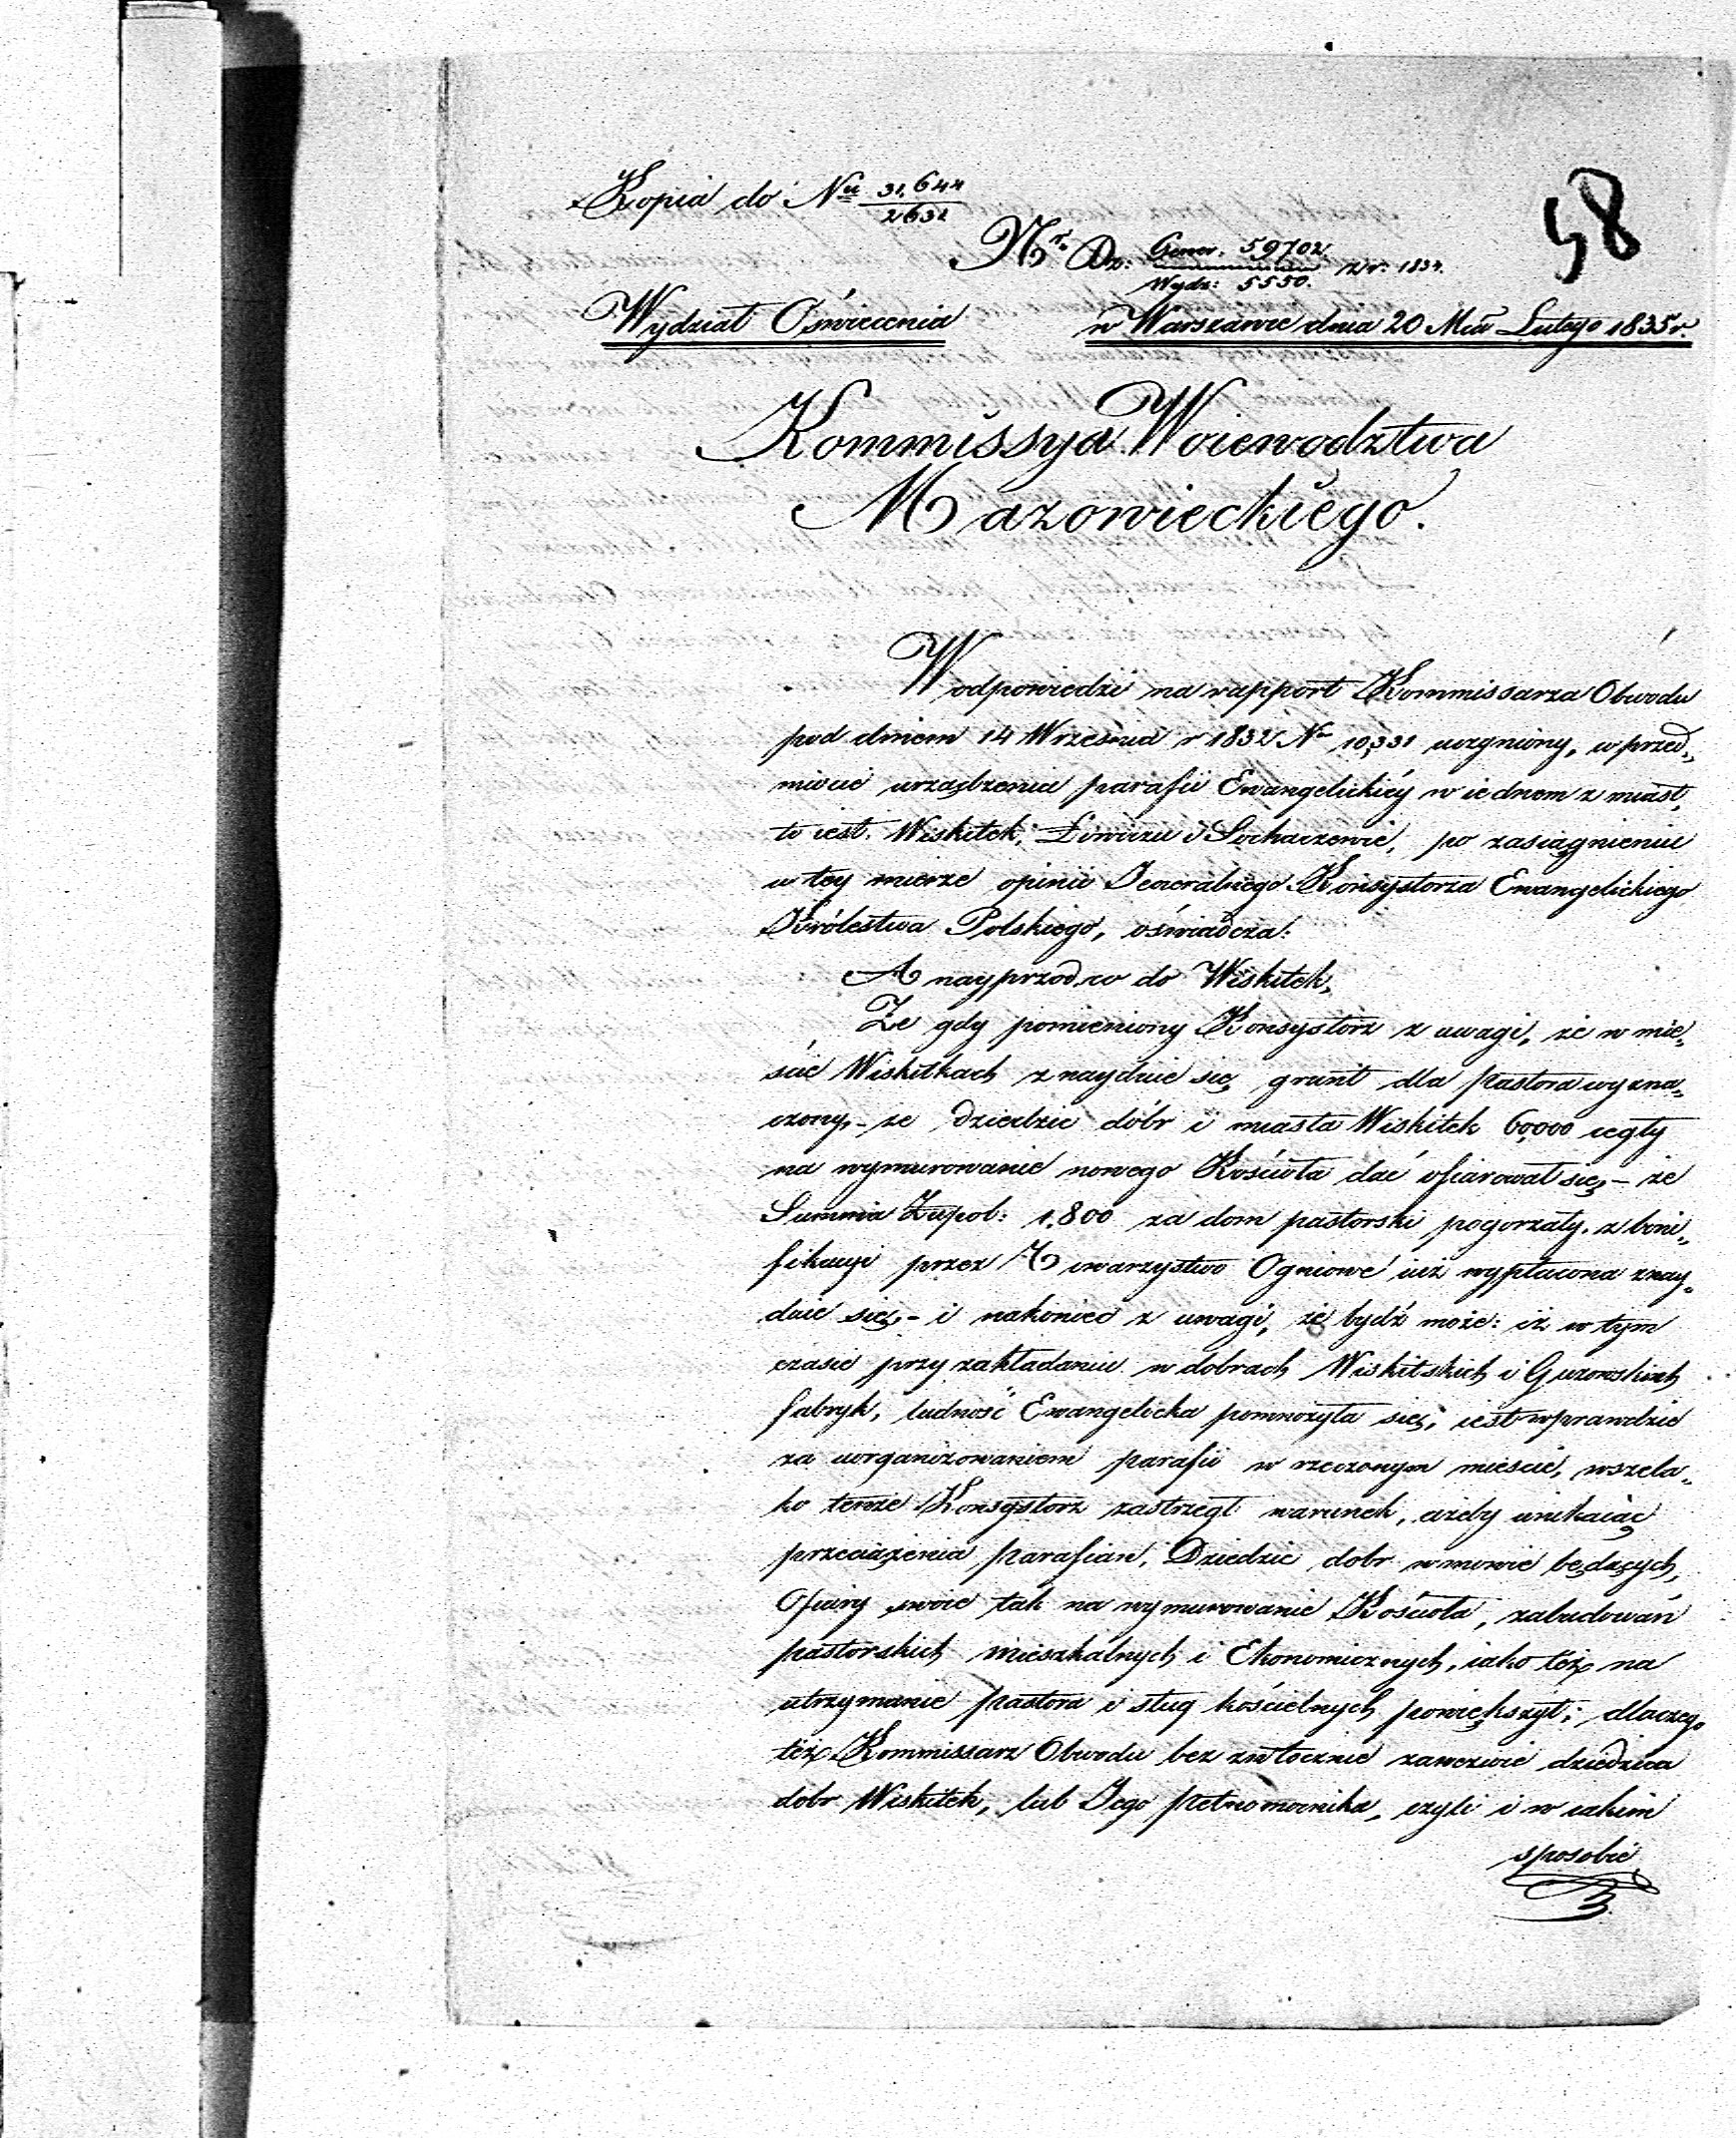 Kopia do Nu 31,644/2632
58
Nr Dz: Gener. 59702/Wydz: 5550. z r. 1834.
Wydział Oświecenia w Warszawie dnia 20 Mca Lutego 1835 r.
Kommissya Woiewodztwa
Mazowieckiego.
W odpowiedzi na rapport Kommissarza Obwodu
pod dniem 14 Września r 1832 Nr 10,331 uczyniony, w przed„
miocie urządzenia parafii Ewangelickiéy w iednem z miast,
to iest. Wiskitek, Łowiczu i Sochaczewie, po zasiągnieniu
w tey mierze opinii Jeneralnego Konsystorza Ewangelickiego
Królestwa Polskiego, oświadcza:
A nayprzod co do Wiskitek,
Ze gdy pomieniony Konsystorz z uwagi, że w mie„
ście Wiskitkach znayduie się grunt dla Pastora wyzna„
czony, – że Dziedzic dóbr i miasta Wiskitek 60,000 cegły
na wymurowanie nowego Kościoła dać ofiarował się, – że
Summa Złpol: 1,800 za dom pastorski pogorzały, z boni„
fikacyi przez Towarzystwo Ogniowe iuż wypłacona znay„
duie się, – i nakoniec z uwagi, że bydź może: iż w tym
czasie przy zakładaniu w dobrach Wiskitskich i Guzowskich
fabryk, ludność Ewangelicka pomnożyła się, iest wprawdzie
za uorganizowaniem parafii w rzeczonym mieście, wszela„
ko tenże Konsystorz zastrzegł warunek, ażeby unikaiąc
przeciążenia Parafian, Dziedzic dobr w mowie będących,
Ofiary swoie tak na wymurowanie Kościoła, zabudowań
pastorskich mieszkalnych i Ekonomicznych, iako też na
utrzymanie Pastora i sług kościelnych powiększył; dlaczego
też Kommissarz Obwodu bez zwłocznie zawezwie dziedzica
dobr Wiskitek, lub Jego Pełnomocnika, czyli i w iakim
sposobie